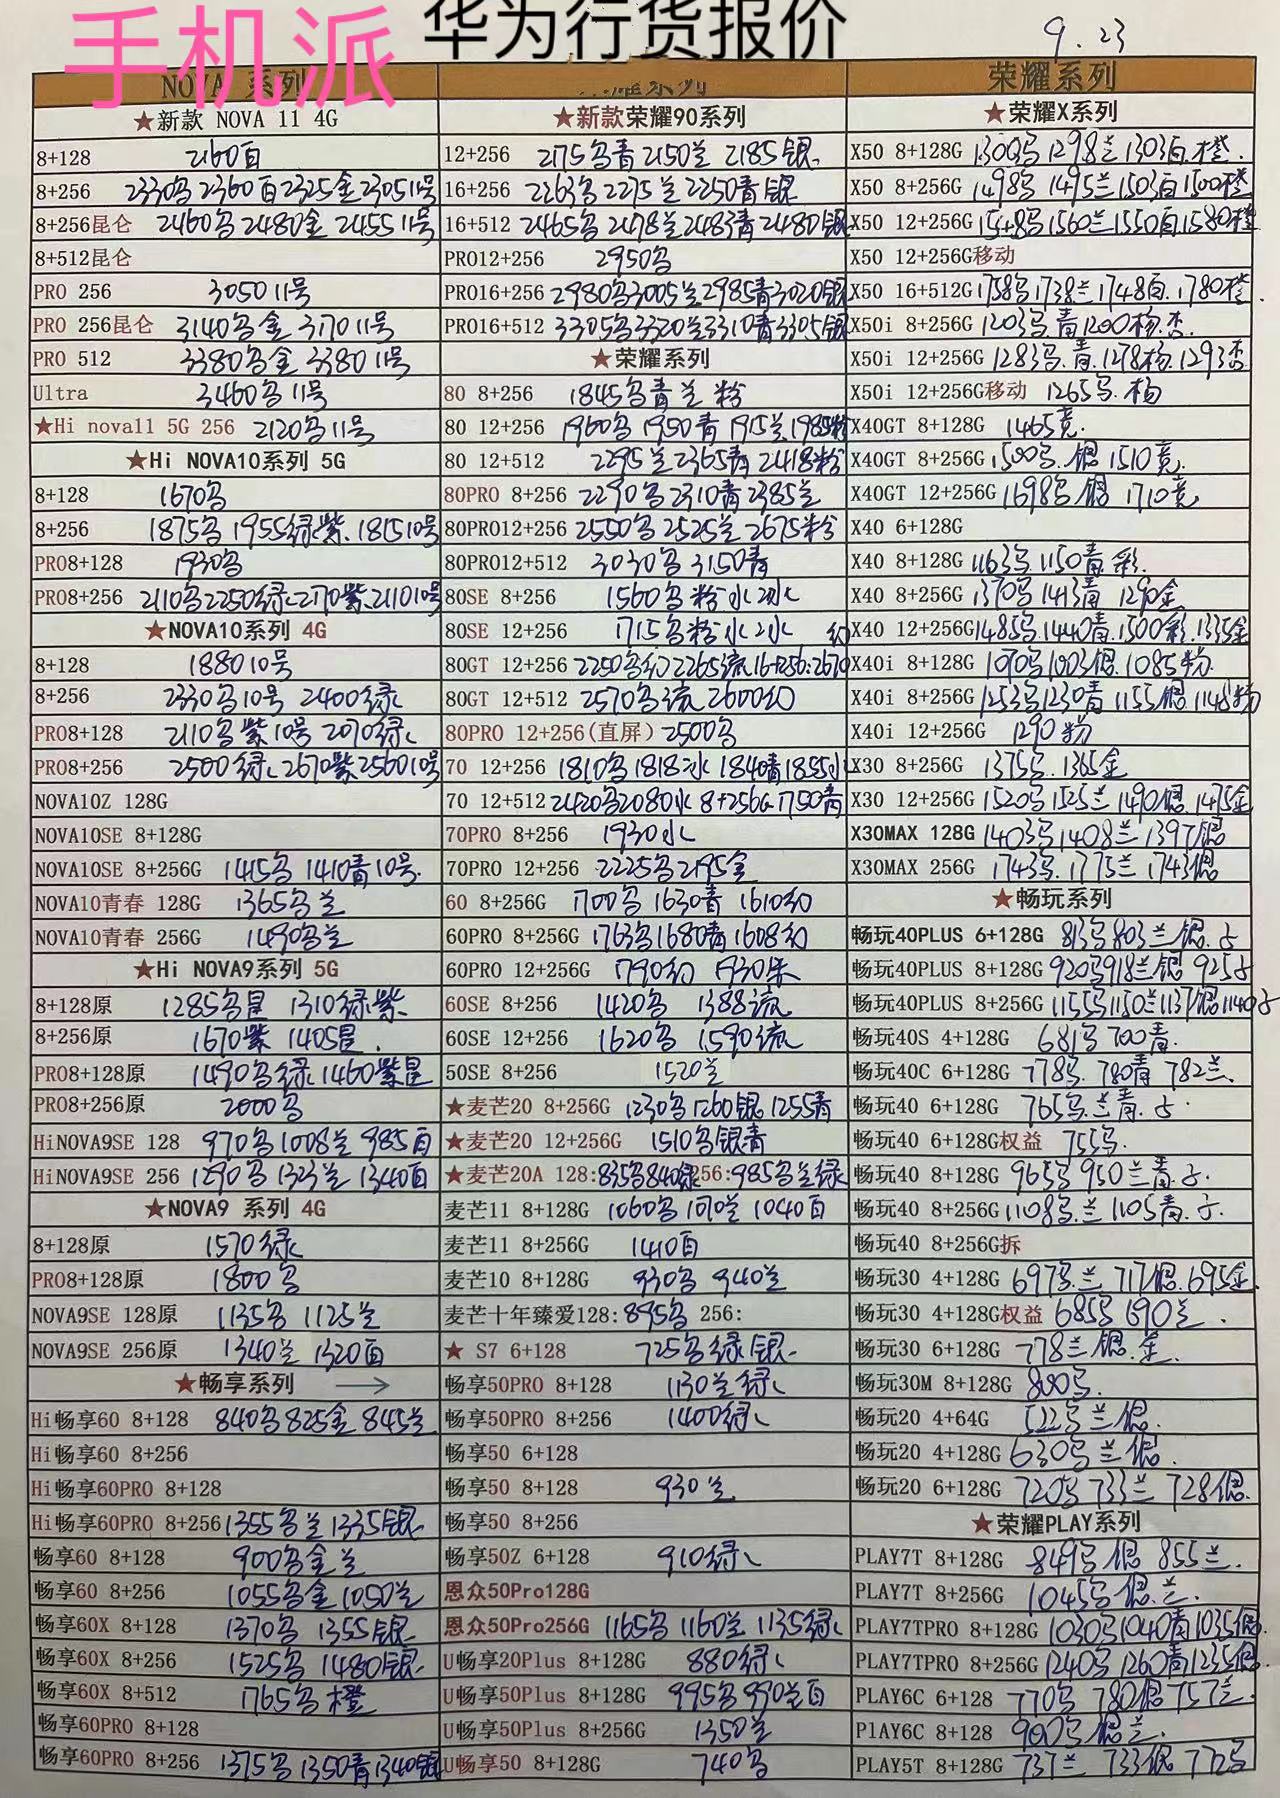 手机派
华为行货报价
9.23
NOVA 系列
★新款 NOVA 11 4G
8+128 2160白
8+256 2330乌 2360白 2325金 2305 11号
8+256昆仑 2460乌 2480金 2455 11号
8+512昆仑
PRO 256 3050 11号
PRO 256昆仑 3140乌金 3170 11号
PRO 512 3380乌金 3380 11号
Ultra 3460乌 11号
★Hi nova11 5G 256 2120乌 11号
★Hi NOVA10系列 5G
8+128 1670乌
8+256 1875乌 1955绿紫. 1815 10号
PRO8+128 1930乌
PRO8+256 2110乌 2250绿 2170紫 2110 10号
★NOVA10系列 4G
8+128 1880 10号
8+256 2330乌 10号 2400绿
PRO8+128 2110乌紫 10号 2070绿
PRO8+256 2500绿 2670紫 2560 10号
NOVA10Z 128G
NOVA10SE 8+128G
NOVA10SE 8+256G 1415乌 1410青 10号
NOVA10青春 128G 1365乌兰
NOVA10青春 256G 1490乌兰
★Hi NOVA9系列 5G
8+128原 1285乌星 1310绿紫
8+256原 1670紫 1405星.
PRO8+128原 1490乌绿 1460紫星
PRO8+256原 2000乌
HiNOVA9SE 128 970乌 1008兰 985白
HiNOVA9SE 256 1290乌 1323兰 1340白
★NOVA9 系列 4G
8+128原 1570绿
PRO8+128原 1800乌
NOVA9SE 128原 1135乌 1125兰
NOVA9SE 256原 1340兰 1320白
★畅享系列 →
Hi畅享60 8+128 840乌 825金 845兰
Hi畅享60 8+256
Hi畅享60PRO 8+128
Hi畅享60PRO 8+256 1355乌兰 1335银
畅享60 8+128 900乌金兰
畅享60 8+256 1055乌金 1050兰
畅享60X 8+128 1370乌 1355银
畅享60X 8+256 1525乌 1480银
畅享60X 8+512 1765乌橙
畅享60PRO 8+128
畅享60PRO 8+256 1375乌 1350青 1340银
★新款荣耀90系列
12+256 2175乌青 2150兰 2185银
16+256 2263乌 2275兰 2250青银
16+512 2465乌 2478兰 2483青 2480银
PRO12+256 2950乌
PRO16+256 2980乌 3005兰 2985青 3020银
PRO16+512 3305乌 3320兰 3310青 3305银
★荣耀系列
80 8+256 1845乌青兰粉
80 12+256 1960乌 1950青 1915兰 1985粉
80 12+512 2295兰 2365青 2418粉
80PRO 8+256 2290乌 2310青 2385兰
80PRO12+256 2550乌 2525兰 2675粉
80PRO12+512 3030乌 3150青
80SE 8+256 1560乌粉水冰
80SE 12+256 1715乌粉水冰
80GT 12+256 2250乌幻 2265流 16+256:2670
80GT 12+512 2570乌流 2600幻
80PRO 12+256(直屏) 2500乌
70 12+256 1810乌 1818冰 1840青 1855水
70 12+512 2420乌 2080水 8+256G 1750青
70PRO 8+256 1930水
70PRO 12+256 2225乌 2195金
60 8+256G 1700乌 1630青 1610幻
60PRO 8+256G 1763乌 1680青 1608幻
60PRO 12+256G 1790幻 1930朱
60SE 8+256 1420乌 1388流
60SE 12+256 1620乌 1590流
50SE 8+256 1520兰
★麦芒20 8+256G 1230乌 1260银 1255青
★麦芒20 12+256G 1510乌银青
★麦芒20A 128:835乌840绿 256:985乌兰绿
麦芒11 8+128G 1060乌 1070兰 1040白
麦芒11 8+256G 1410白
麦芒10 8+128G 930乌 940兰
麦芒十年臻爱128:895乌 256:
★ S7 6+128 725乌绿银
畅享50PRO 8+128 1130兰绿
畅享50PRO 8+256 1400绿
畅享50 6+128
畅享50 8+128 930兰
畅享50 8+256
畅享50Z 6+128 910绿
恩众50Pro128G
恩众50Pro256G 1165乌 1160兰 1135绿
U畅享20Plus 8+128G 880绿
U畅享50Plus 8+128G 995乌 990兰白
U畅享50Plus 8+256G 1350兰
U畅享50 8+128G 740乌
荣耀系列
★荣耀X系列
X50 8+128G 1300乌 1298兰 1303白.橙.
X50 8+256G 1498乌 1495兰 1503白 1500橙
X50 12+256G 1548乌 1560兰 1550白 1580橙
X50 12+256G移动
X50 16+512G 1758乌 1738兰 1748白. 1780橙
X50i 8+256G 1203乌.青 1200杨.杏.
X50i 12+256G 1283乌.青. 1278杨. 1293杏
X50i 12+256G移动 1265乌.杨
X40GT 8+128G 1465竞.
X40GT 8+256G 1500乌.银 1510竞.
X40GT 12+256G 1698乌 银 1710竞
X40 6+128G
X40 8+128G 1163乌 1150青.彩.
X40 8+256G 1370乌 1413青 1290金
X40 12+256G 1485乌 1440青. 1500彩. 1335金
X40i 8+128G 1090乌 1003银. 1085粉.
X40i 8+256G 1253乌 1230青 1155银 1148粉
X40i 12+256G 1290粉
X30 8+256G 1375乌. 1365金
X30 12+256G 1520乌 1525兰 1490银. 1475金
X30MAX 128G 1403乌 1408兰 1397银
X30MAX 256G 1743乌. 1775兰 1743银
★畅玩系列
畅玩40PLUS 6+128G 813乌 803兰 银.
畅玩40PLUS 8+128G 920乌 918兰 银 925
畅玩40PLUS 8+256G 1155乌 1150兰 1137银 1140
畅玩40S 4+128G 681乌 700青.
畅玩40C 6+128G 778乌. 780青 782兰.
畅玩40 6+128G 765乌.兰青.
畅玩40 6+128G权益 755乌.
畅玩40 8+128G 965乌 950兰青.
畅玩40 8+256G 1108乌.兰 1105青.
畅玩40 8+256G拆
畅玩30 4+128G 697乌.兰 717银. 695金
畅玩30 4+128G权益 685乌 690兰.
畅玩30 6+128G 778兰 银.金.
畅玩30M 8+128G 800乌.
畅玩20 4+64G 522乌兰银.
畅玩20 4+128G 630乌兰银.
畅玩20 6+128G 720乌 733兰 728银.
★荣耀PLAY系列
PLAY7T 8+128G 849乌 银 855兰.
PLAY7T 8+256G 1045乌银.兰.
PLAY7TPRO 8+128G 1030乌 1040青 1035银.
PLAY7TPRO 8+256G 1240乌 1260青 1235银.
PLAY6C 6+128 770乌 780银 757兰.
PlAY6C 8+128 900乌 银兰.
PLAY5T 8+128G 737兰 733银 772乌